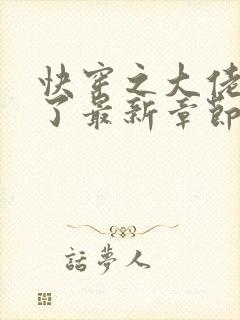 快穿之大佬
了最新章節
話夢人